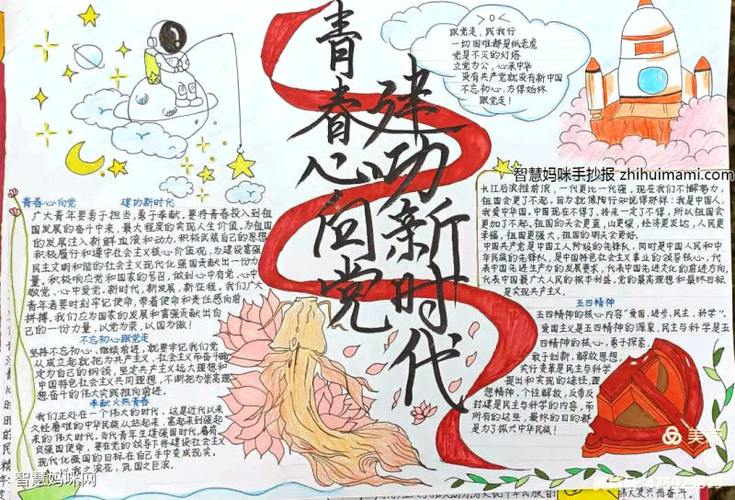 青春心向党
建功新时代
>0<
跟党走，践我行
一切困难都是纸老虎
党是不灭的灯塔
立党为公，心系中华
没有共产党就没有新中国
不忘初心，方得始终
跟党走！
智慧妈咪手抄报 zhihuimami.com
青春心向党 建功新时代
广大青年要勇于担当，勇于奉献，要将青春投入到祖
国发展的奋斗中来，最大程度的实现人生价值，为祖国
的发展注入新鲜血液和动力，积极武装自己的思想
积极履行和遵守社会主义核心价值观，为建设富强
民主文明和谐的社会主义现代化强国贡献出一份力
量，积极响应党和国家的号召，做到心中有党，心中
敬党，心中爱党，新时代，新发展，新征程，我们广大
青年要时刻牢记使命，带着使命和责任感向前
拼搏，我们应为国家的发展和富强贡献出自
己的一份力量，以党为荣，以国为傲！
不忘初心跟党走
坚持不忘初心，继续前进，就要牢记我们党
从成立起就把为共产主义、社会主义而奋斗确
定为自己的纲领，坚定共产主义远大理想和
中国特色社会主义共同理想，不断把为崇高理
想奋斗的伟大实践推向前进。
奉献火热青春
我们正处在一个伟大的时代，这是近代以来
久经磨难的中华民族从站起来，富起来到强起
来的伟大时代，当代青年生逢强国时代，肩负
强国使命，要在党的领导下将建设社会主义
现代化强国的目标在自己手中变成现实，
以我之滚花，筑国之巨浪。
长江后浪推前浪，一代更比一代强，现在我们不懈努力，
祖国会更了不起，因为就像陶行知说得那样：我是中国人，
我爱中华国，中国现在不得了，将来一定了不得，所以祖国会
更加了不起，祖国的天会更蓝，山更绿，经济更发达，人民更
幸福，祖国更强大，祖国的明天会更好。
中国共产党是中国工人阶级的先锋队，同时是中国人民和中
华民族的先锋队，是中国特色社会主义事业的领导核心，代
表中国先进生产力的发展要求，代表中国先进文化的前进方向，
代表中国最广大人民的根本利益，党的最高理想和最终目标
是实现共产主义。
五四精神
五四精神的核心内容“爱国、进步、民主、科学”。
爱国主义是五四精神的源泉，民主与科学是五
四精神的核心，勇于探索、
敢于创新、解放思想、
实行变革是民主与科学
提出和实现的途径，理
想精神，个性解放，反帝反
封建是民主与科学的内容，而
所有的这些，最终的目的都
是为了振兴中华民族！
智慧妈咪网